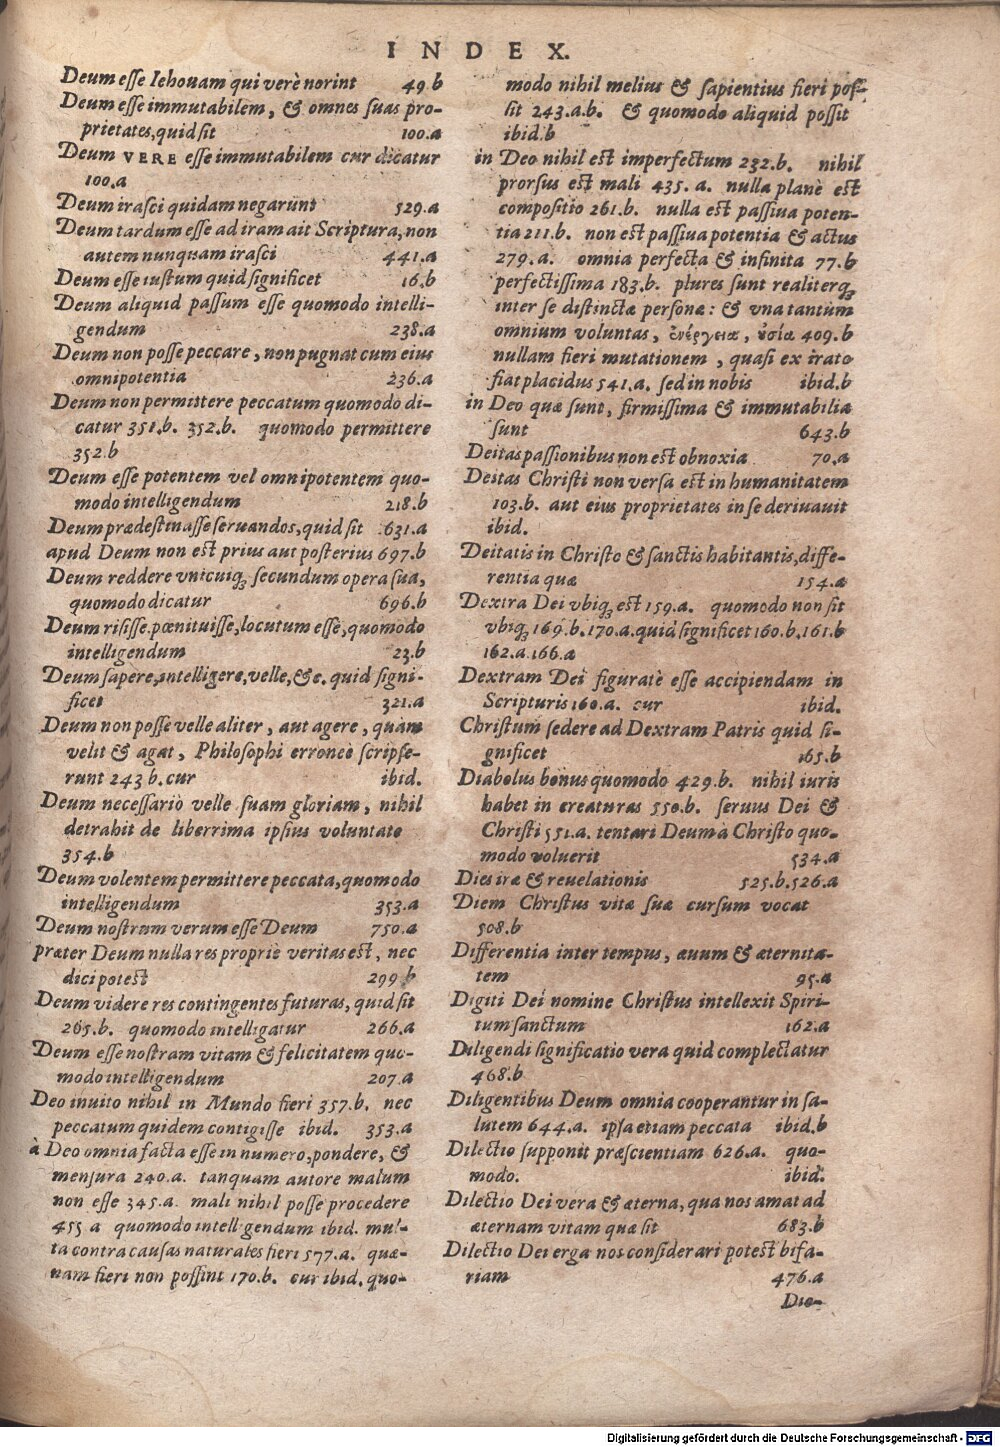 INDEX.
Deum esse Iehouam qui verè norint 49.b
Deum esse immutabilem, & omnes suas pro-
prietates, quid sit 100.a
Deum VERE esse immutabilem cur dicatur
100.a
Deum irasci quidam negarunt 529.a
Deum tardum esse ad iram ait Scriptura, non
autem nunquam irasci 441.a
Deum esse iustum quid significet 16.b
Deum aliquid passum esse quomodo intelli-
gendum 238.a
Deum non posse peccare, non pugnat cum eius
omnipotentia 236.a
Deum non permittere peccatum quomodo di-
catur 351.b. 352.b. quomodo permittere
352.b
Deum esse potentem vel omnipotentem quo-
modo intelligendum 218.b
Deum prædestinasse seruandos, quid sit 631.a
apud Deum non est prius aut posterius 697.b
Deum reddere vnicuiq; secundum opera sua,
quomodo dicatur 696.b
Deum risisse, pœnituisse, locutum esse, quomodo
intelligendum 23.b
Deum sapere, intelligere, velle, &c. quid signi-
ficet 321.a
Deum non posse velle aliter, aut agere, quàm
velit & agat, Philosophi erroneè scripse-
runt 243 b. cur ibid.
Deum necessariò velle suam gloriam, nihil
detrahit de liberrima ipsius voluntate
354.b
Deum volentem permittere peccata, quomodo
intelligendum 353.a
Deum nostrum verum esse Deum 750.a
præter Deum nulla res propriè veritas est, nec
dici potest 299 b
Deum videre res contingentes futuras, quid sit
265.b. quomodo intelligatur 266.a
Deum esse nostram vitam & felicitatem quo-
modo intelligendum 207.a
Deo inuito nihil in Mundo fieri 357.b. nec
peccatum quidem contigisse ibid. 353.a
à Deo omnia facta esse in numero, pondere, &
mensura 240.a. tanquam autore malum
non esse 345.a. mali nihil posse procedere
455 a quomodo intelligendum ibid. mul-
ta contra causas naturales fieri 577.a. quæ-
nam fieri non possint 170.b. cur ibid. quo-
modo nihil melius & sapientius fieri pos-
sit 243.a.b. & quomodo aliquid possit
ibid.b
in Deo nihil est imperfectum 232.b. nihil
prorsus est mali 435. a. nulla planè est
compositio 261.b. nulla est passiua poten-
tia 211.b. non est passiua potentia & actus
279.a. omnia perfecta & infinita 77.b
perfectissima 183.b. plures sunt realiterq;
inter se distinctæ personæ: & vna tantùm
omnium voluntas, ἐνέργεια, ὐσία 409.b
nullam fieri mutationem, quasi ex irato
fiat placidus 541.a. sed in nobis ibid.b
in Deo quæ sunt, firmissima & immutabilia
sunt 643.b
Deitas passionibus non est obnoxia 70.a
Deitas Christi non versa est in humanitatem
103.b. aut eius proprietates in se deriuauit
ibid.
Deitatis in Christo & sanctis habitantis, diffe-
rentia quæ 154.a
Dextra Dei vbiq; est 159.a. quomodo non sit
vbiq; 169.b.170.a. quid significet 160.b.161.b
162.a.166.a
Dextram Dei figuratè esse accipiendam in
Scripturis 160.a. cur ibid.
Christum sedere ad Dextram Patris quid si-
gnificet 165.b
Diabolus bonus quomodo 429.b. nihil iuris
habet in creaturas 550.b. seruus Dei &
Christi 551.a. tentari Deum à Christo quo-
modo voluerit 534.a
Dies iræ & reuelationis 525.b.526.a
Diem Christus vitæ suæ cursum vocat
508.b
Differentia inter tempus, æuum & æternita-
tem 95.a
Digiti Dei nomine Christus intellexit Spiri-
tum sanctum 162.a
Diligendi significatio vera quid complectatur
468.b
Diligentibus Deum omnia cooperantur in sa-
lutem 644.a. ipsa etiam peccata ibid.b
Dilectio supponit præscientiam 626.a. quo-
modo. ibid.
Dilectio Dei vera & æterna, qua nos amat ad
æternam vitam quæ sit 683.b
Dilectio Dei erga nos considerari potest bifa-
riam 476.a
Die-
Digitalisierung gefördert durch die Deutsche Forschungsgemeinschaft - DFG